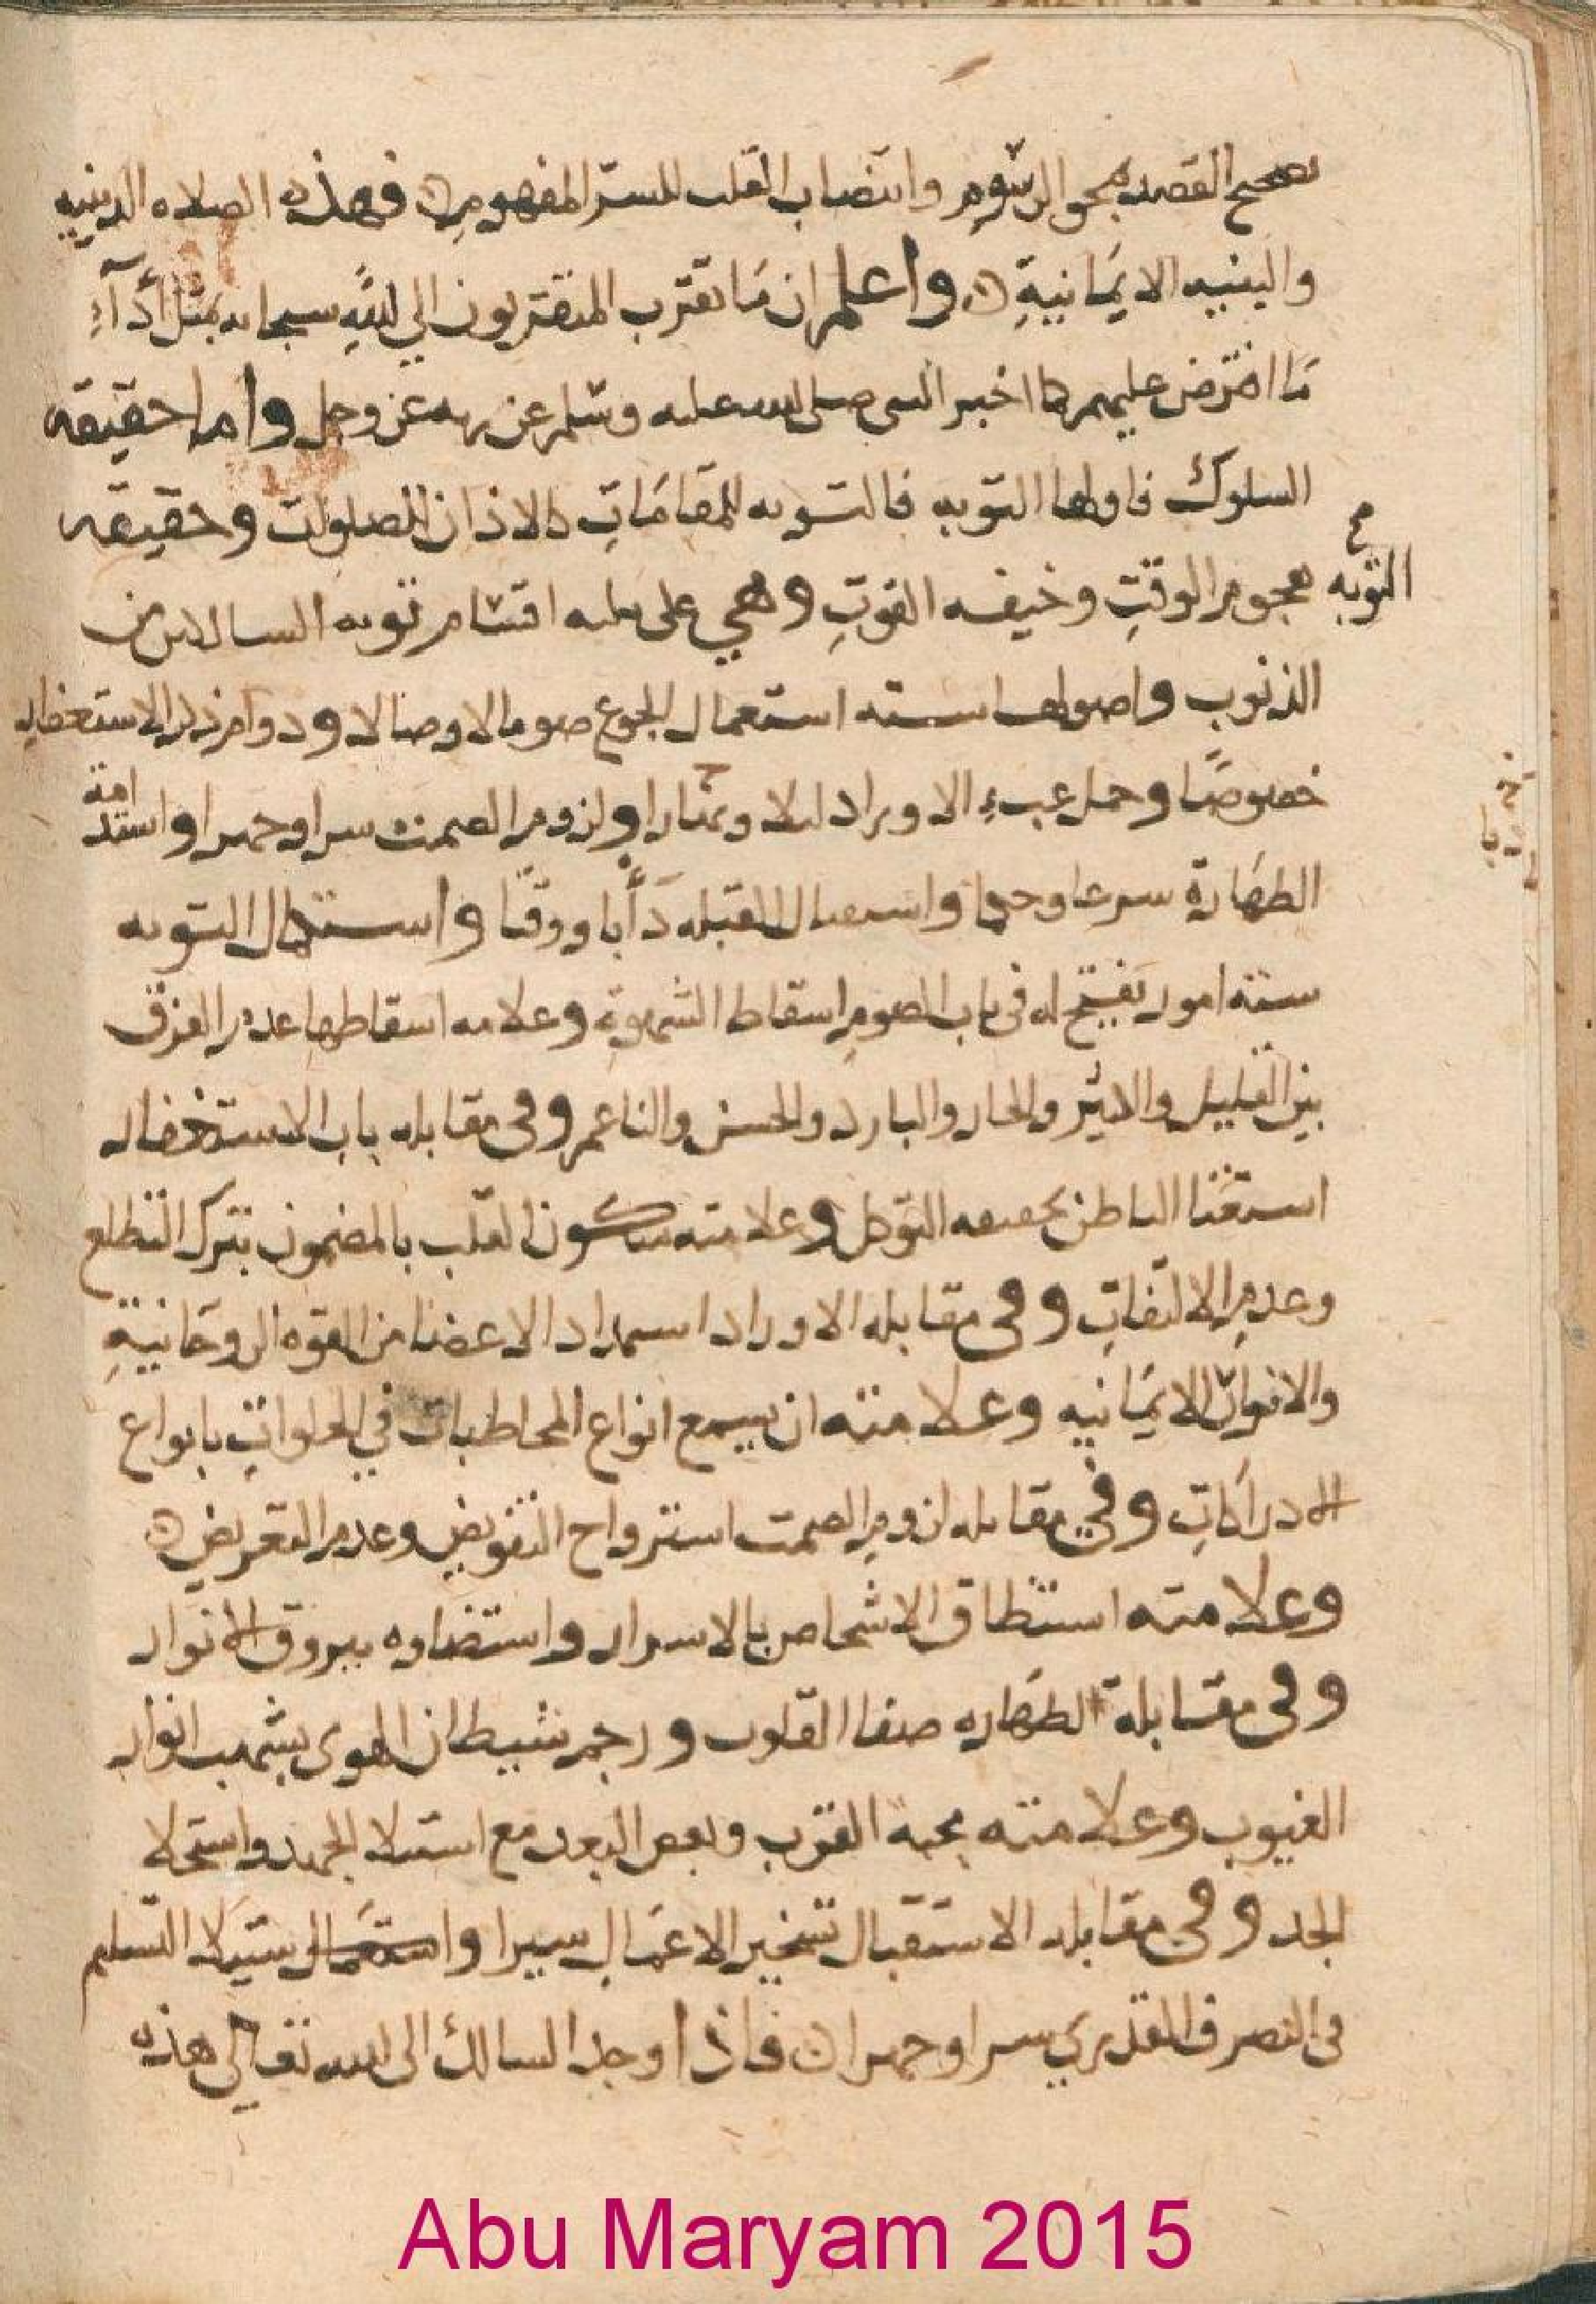 تصحيح القصد بمحو الرسوم وانتصاب القلب للسر المفهوم فهذه الصلاه الدينيه
والبنيه الايمانية واعلم ان ما تقرب المتقربون الي الله سبحانه بمثل أدآء
ما افترض عليهم كما اخبر النبي صلى الله عليه وسلم عن ربه عز وجل واما حقيقه
السلوك فاولها التوبه فالتوبه للمقامات كالاذان للصلوات وحقيقه
التوبه هجوم الوقت وخيفه الفوت وهي على ثلثه اقسام توبه السالكين من
الذنوب واصولها سته استعمال الجوع صوما لا وصالا ودوام ذكر الاستغفار
خصوصًا وحمل عبء الاوراد ليلا ونهارا ولزوم الصمت سرا وجهرا واستدامة
الطهارة شرعا وحكما واستقبال القبله دَأبا ووقتا واستكمال التوبه
سته امور يفتح له في باب الصوم اسقاط الشهوة وعلامه اسقاطها عدم الفرق
بين القليل والكثير والحار والبارد والخشن والناعم وفي مقابله باب الاستغفار
استغنا الباطن بحقيقه التوكل وعلامته سكون القلب بالمضمون بترك التطلع
وعدم الالتفات وفي مقابله الاوراد استمداد الاعضا من القوه الروحانية
والاقوات الايمانيه وعلامته ان يسمع انواع المخاطبات في الخلوات بانواع
الادراكات وفي مقابله لزوم الصمت استرواح التفويض وعدم التعريض
وعلامته استنطاق الاشخاص بالاسرار واستضاوه ببروق الانوار
وفي مقابلة الطهاره صفا القلوب ورجم شيطان الهوى بشهب انوار
الغيوب وعلامته محبة القرب وبغض البعد مع استيلا الجهد واستحلا
الجد وفي مقابله الاستقبال تسخير الاعمال سيرا واستيلا التسليم
في التصرف التقديري سرا وجهرا فاذا وجد السالك الى الله تعالى هذه
Abu Maryam 2015